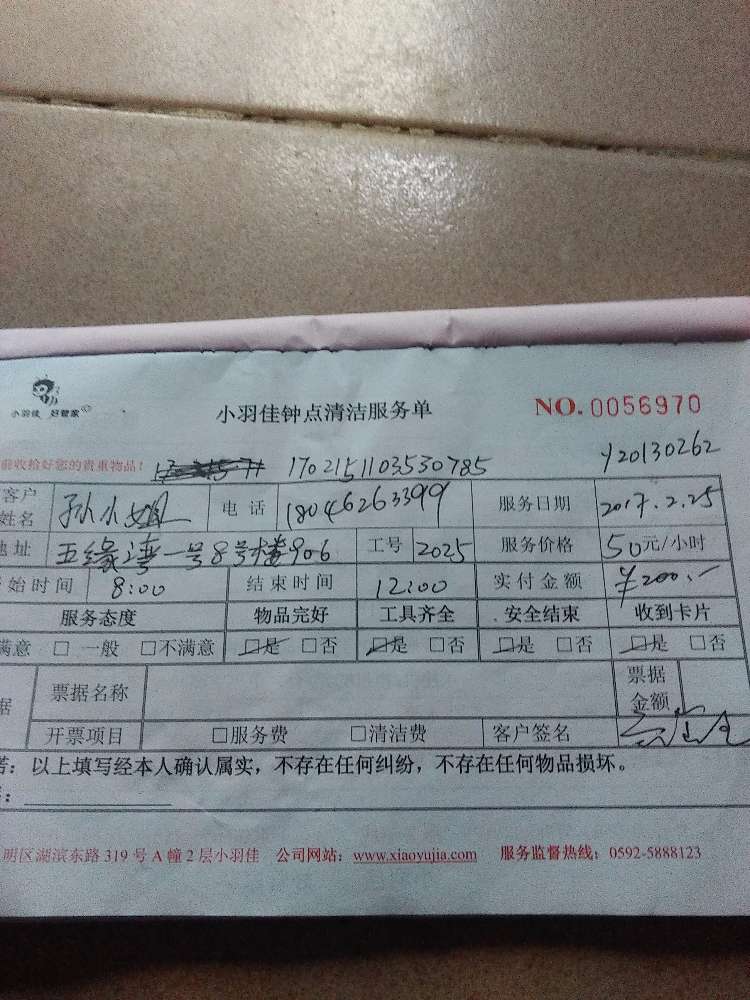 小羽佳 好管家
小羽佳钟点清洁服务单
NO. 0056970
前收拾好您的贵重物品!
1702151103530785
Y20130262
客户姓名 孙小姐 电话 18046263399 服务日期 2017.2.25
地址 五缘湾一号8号楼906 工号 2025 服务价格 50元/小时
始时间 8:00 结束时间 12:00 实付金额 ¥200.-
服务态度 物品完好 工具齐全 安全结束 收到卡片
满意 □ 一般 □不满意 □是 □否 □是 □否 □是 □否 □是 □否
据 票据名称 票据金额
开票项目 □服务费 □清洁费 客户签名
若:以上填写经本人确认属实,不存在任何纠纷,不存在任何物品损坏。
明区湖滨东路 319 号 A 幢 2 层小羽佳 公司网站:www.xiaoyujia.com 服务监督热线:0592-5888123